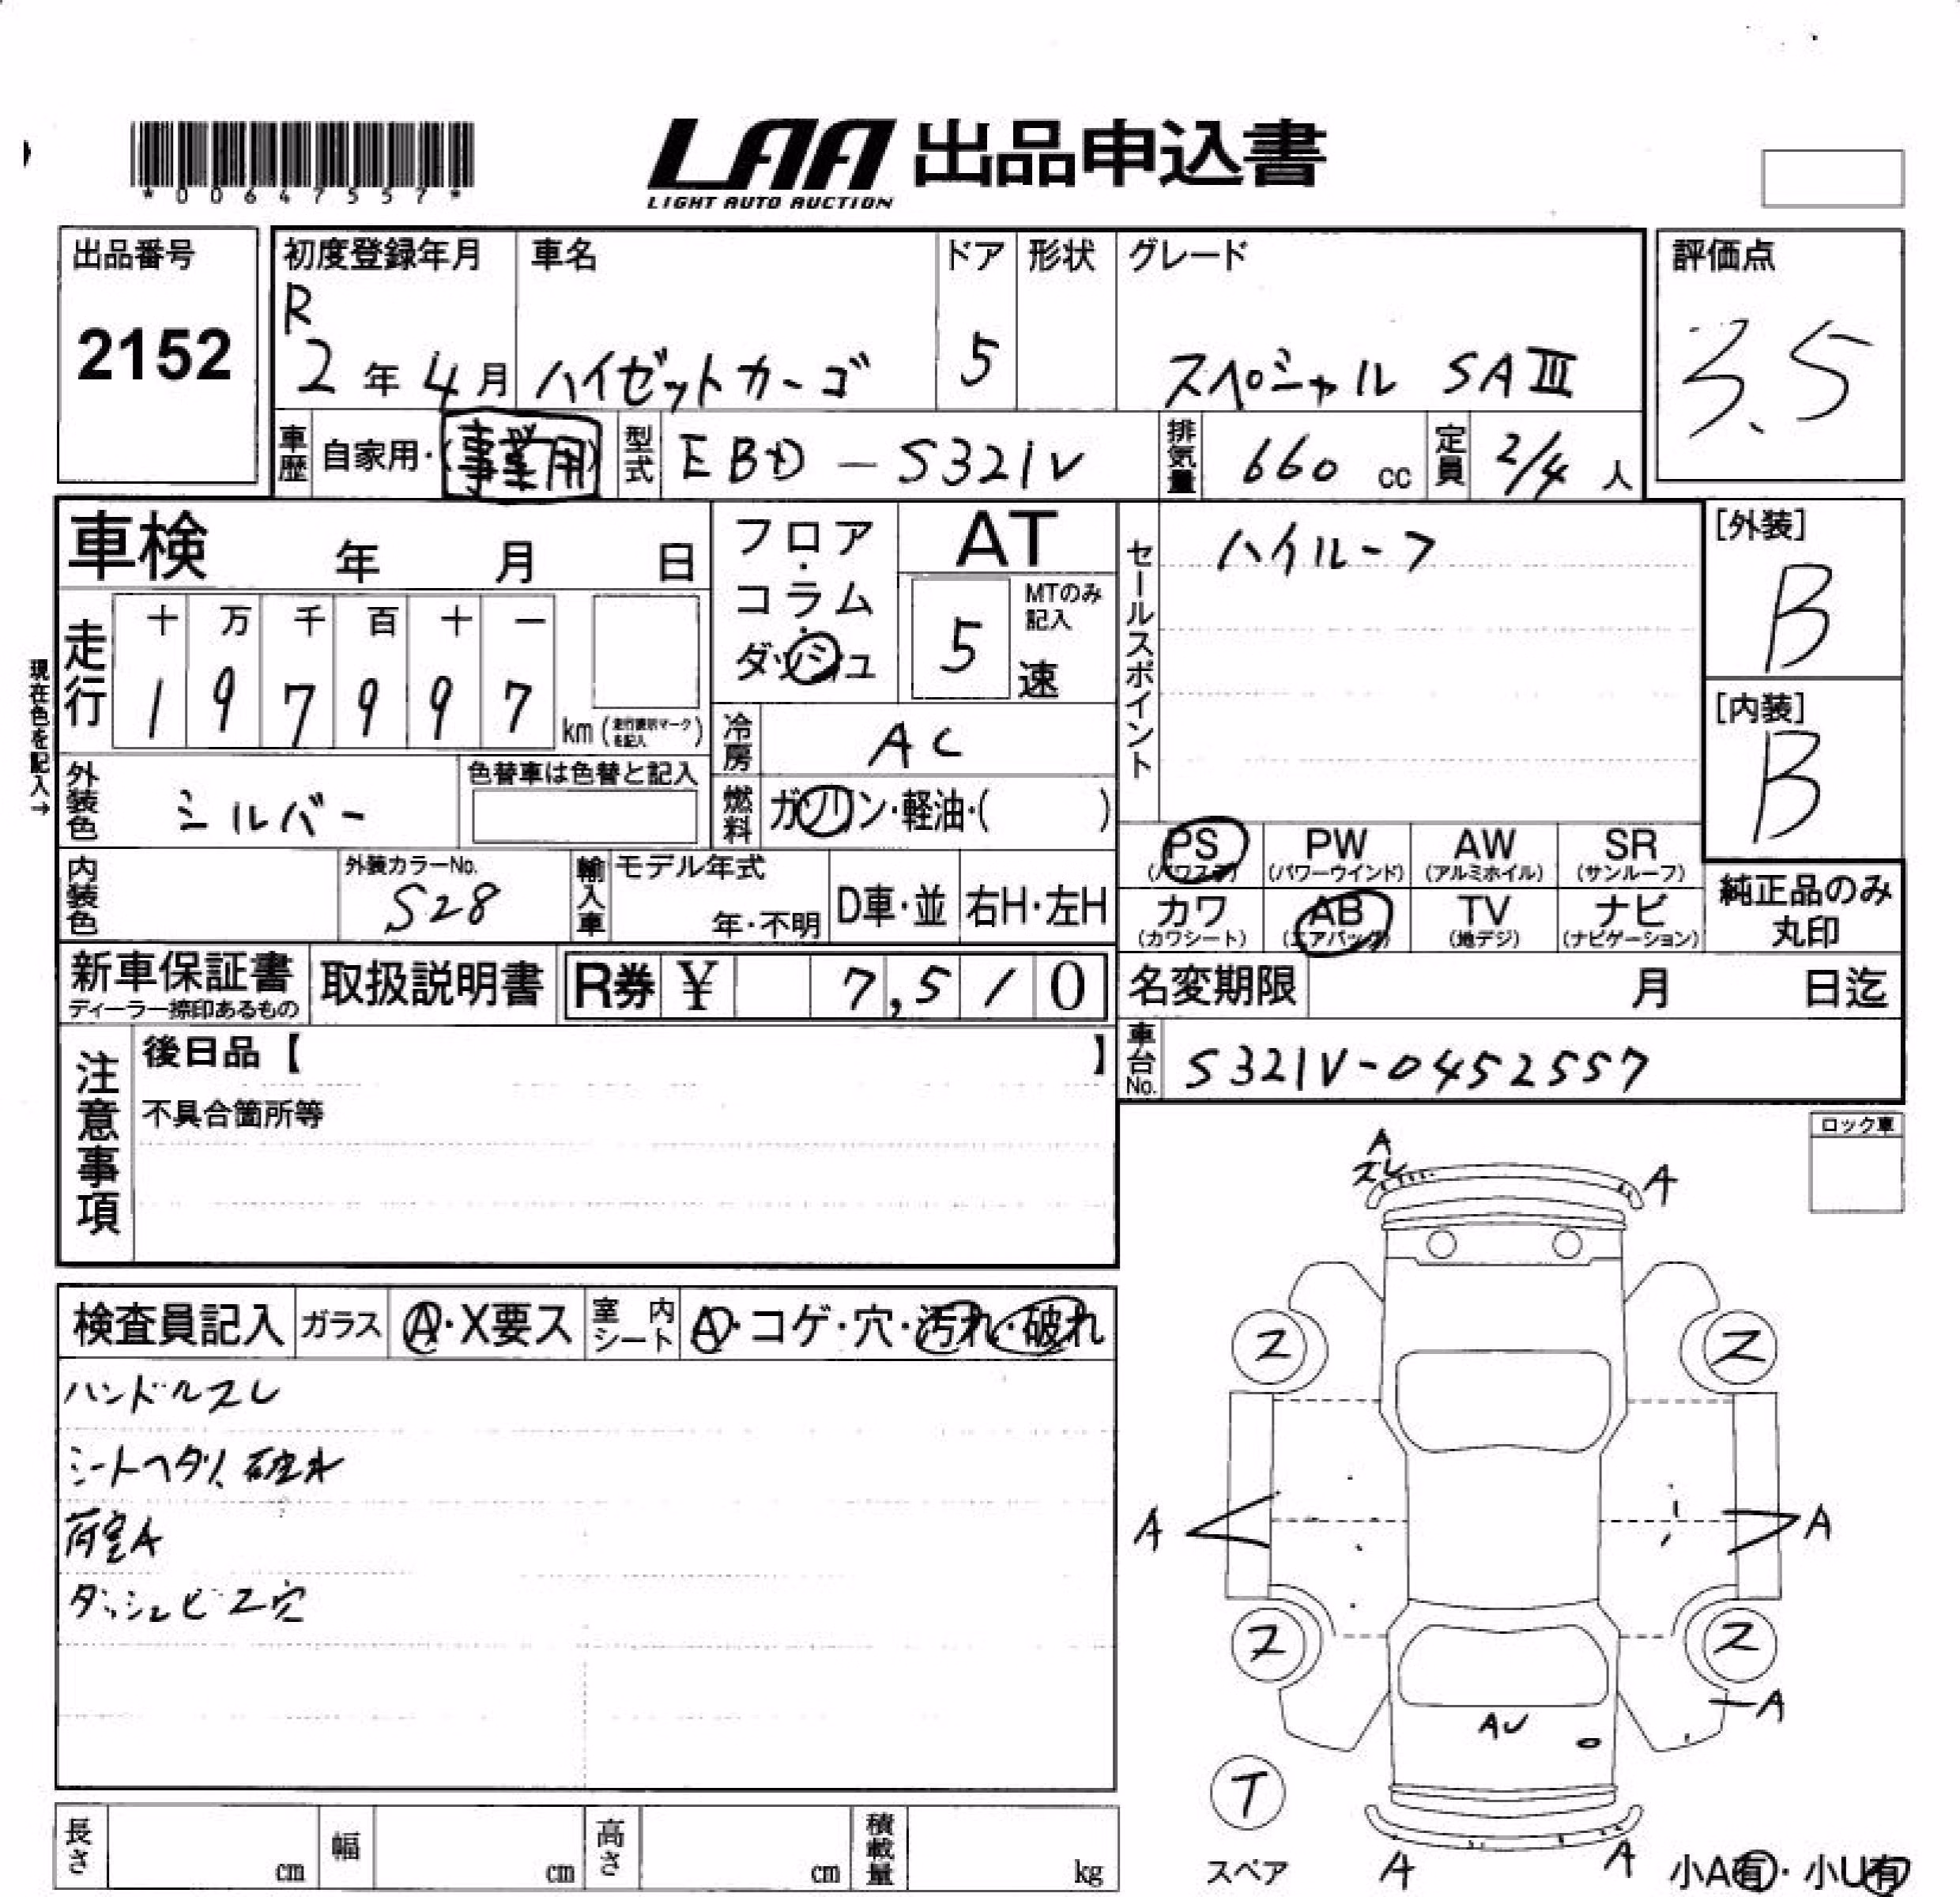 *00647557*
LAA 出品申込書
LIGHT AUTO AUCTION
出品番号
2152
初度登録年月
R
2年4月
車名
ハイゼットカーゴ
ドア
5
形状
グレード
スペシャル SAⅢ
評価点
3.5
車歴
自家用・(事業用)
型式
EBD-S321V
排気量
660 cc
定員
2/4 人
車検 年 月 日
フロア・コラム・ダッシュ
AT
5
MTのみ記入
速
セールスポイント
ハイルーフ
[外装]
B
[内装]
B
現在色を記入→
走行
十 万 千 百 十 一
1 9 7 9 9 7
km
冷房
AC
外装色
シルバー
色替車は色替と記入
燃料
ガソリン・軽油・( )
PS
(パワステ)
PW
(パワーウインド)
AW
(アルミホイル)
SR
(サンルーフ)
カワ
(カワシート)
AB
(エアバック)
TV
(地デジ)
ナビ
(ナビゲーション)
純正品のみ
丸印
内装色
外装カラーNo.
S28
輸入車
モデル年式
年・不明
D車・並
右H・左H
新車保証書
ディーラー捺印あるもの
取扱説明書
R券 ¥ 7,510
名変期限 月 日迄
車台No.
S321V-0452557
注意事項
後日品【 】
不具合箇所等
ロック車
検査員記入
ガラス
A・X要ス
室内シート
A・コゲ・穴・汚れ・破れ
ハンドルスレ
シートヘタリ、破れ
荷室A
ダッシュビス穴
A
スレ
A
ス
ス
A
A
ス
ス
A
AU
T
スペア
A
A
小A有・小U有
長さ cm
幅 cm
高さ cm
積載量 kg